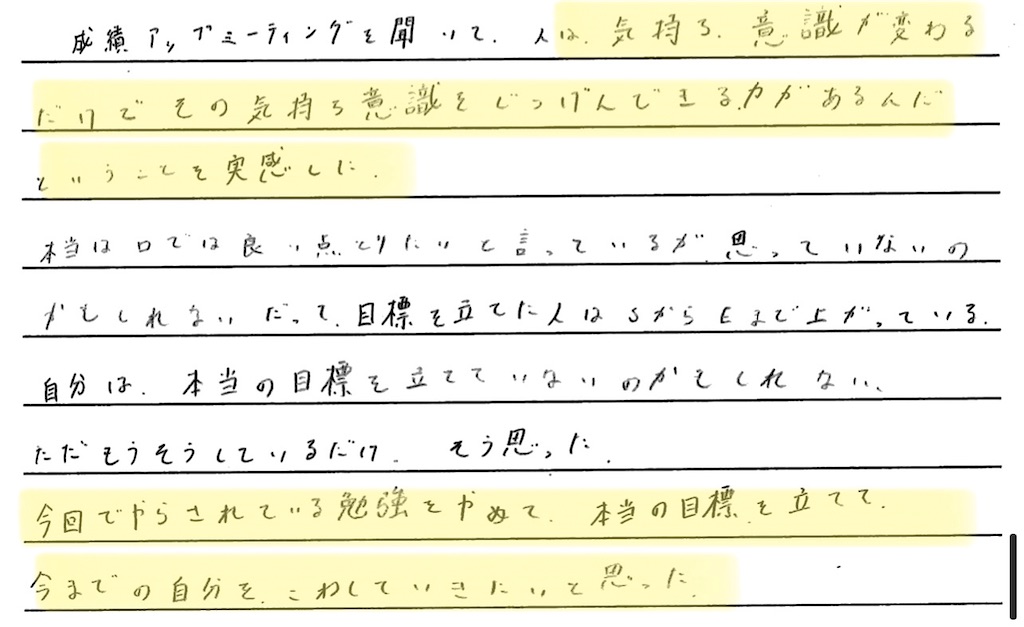 成績アップミーティングを聞いて、人は、気持ち、意識が変わる
だけでその気持ち意識をじつげんできる力があるんだ
ということを実感した。
本当は口では良い点とりたいと言っているが、思っていないの
かもしれないだって、目標を立てた人はSからEまで上がっている。
自分は、本当の目標を立てていないのかもしれない、
ただもうそうしているだけ。そう思った。
今回でやらされている勉強をやめて、本当の目標を立てて、
今までの自分を、こわしていきたいと思った。